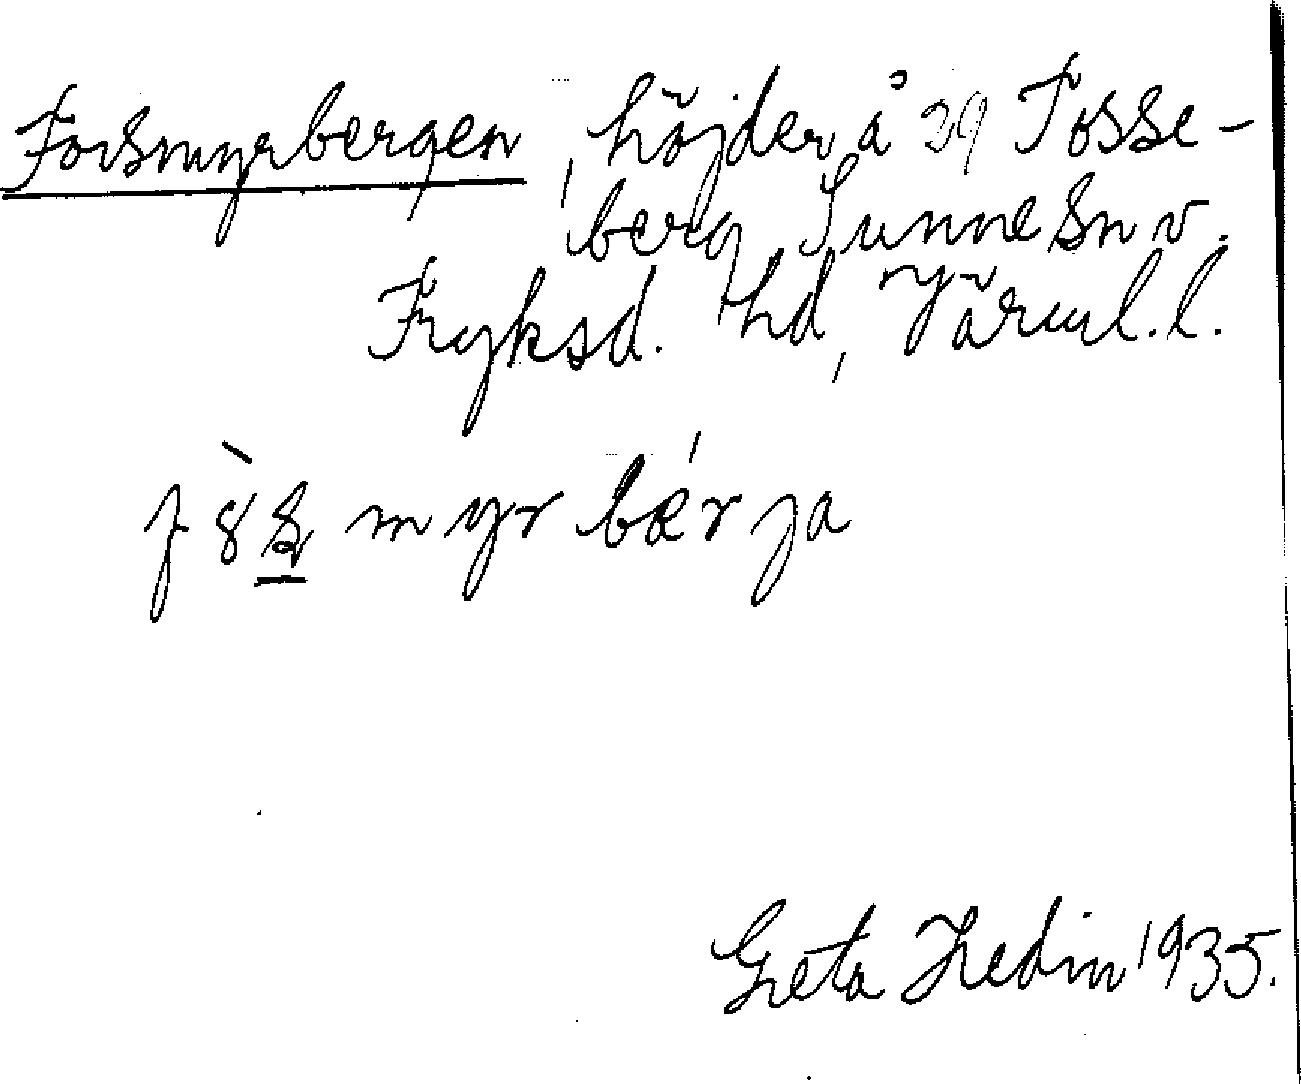 Forsmyrbergen, höjder å 29 Tosse-
berg Sunne sn v.
Fryksd. hd, Värml. l.
myr bærja
Greta Hedin 1935.